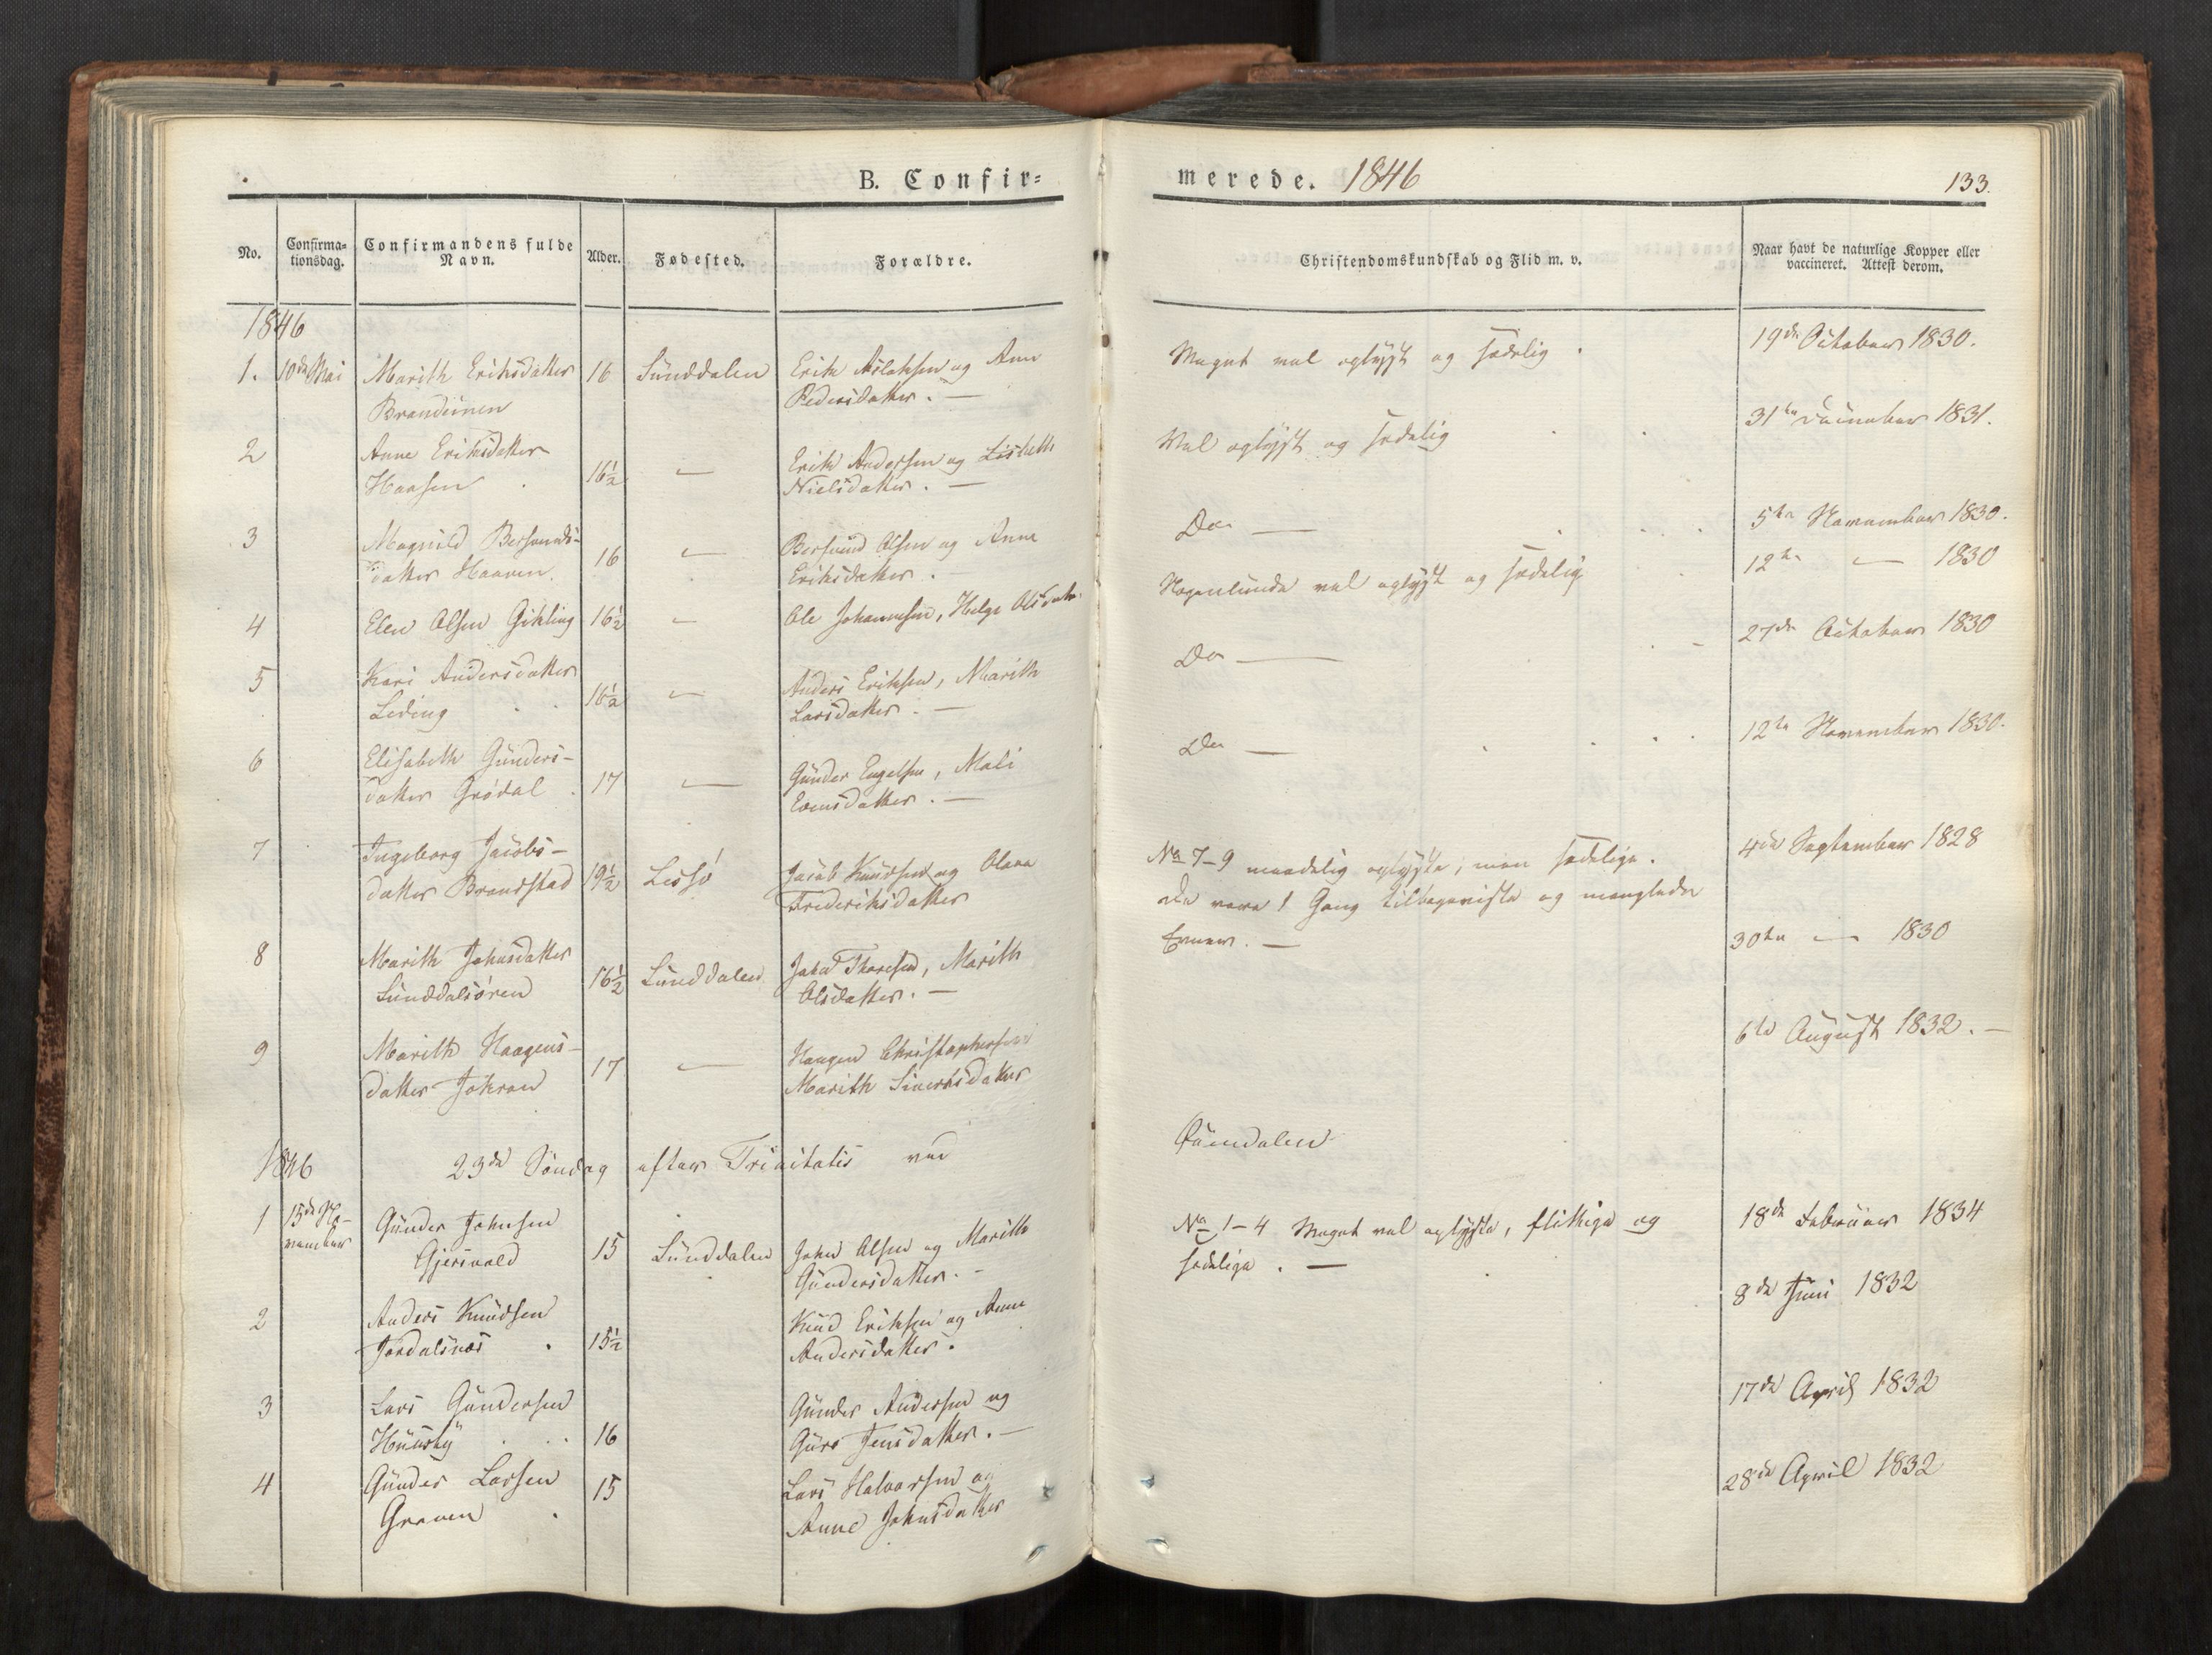 B. Confir=
No.
Confirma=
tionsdag.
Confirmandens fulde
Navn.
Alder.
Fødested.
Forældre.
1846
1. 10de Mai Marith Eriksdatter 16 Sunddalen Erik Aslaksen og Ane
Pedersdatter. —
2 Anne Eriksdatter
Haasen 16½ — Erik Andersen og Lisbeth
Nielsdatter. —
3 Magnild Bersvends-
datter Haaven. 16 — Bersvend Olsen og Anne
Eriksdatter. —
4 Elen Olsen Gikling 16½ — Ole Johannesen, Helge Olsdatr.
5 Kari Andersdatter
16½ — Anders Eriksen, Marith
Larsdatter. —
6 Elisabeth Gunders-
datter Grødal 17 — Gunder Engelsen, Mali
Evensdatter. —
7 Ingeborg Jacobs-
datter Brandstad 19½ Lessø Jacob Knudsen og Olava
Frederiksdatter
8 Marith Johnsdatter
Sunddalsøren 16½ Sunddalen John Thoresen, Marith
Olsdatter. —
9 Marith Haagens-
datter 17 — Haagen Christophersen
Marith Sivertsdatter
1846 23de Søndag efter Trinitatis ved
1 15de No-
vember Gunder Johnsen
Gjersvold 15 Sunddalen John Olsen og Marith
Gundersdatter. —
2 Anders Knudsen
Jordalsnæs 15½ Knud Eriksen og Anne
Andersdatter.
3 Lars Gundersen
Huusby 16 Gunder Andersen og
Guro Jensdatter. —
4 Gunder Larsen 15 Lars Halvorsen og
Graven Anne Johnsdatter
merede. 1846
133.
Christendomskundskab og Flid m. v.
Naar havt de naturlige Kopper eller
vaccineret. Attest derom.
Meget vel oplyst og sædelig. 19de October 1830.
Vel oplyst og sædelig 31te December 1831.
Do — 5te November 1830.
Nogenlunde vel oplyst og sædelig 12te — 1830
Do — 27de October 1830
Do — 12te November 1830.
No 7-9 maadelig oplyste; men sædelige. 4de September 1828
De vare 1 Gang tilbageviste og manglede
Evner. — 30te — 1830
6te August 1832. —
No 1-4 Meget vel oplyste, flittige og 18de Februar 1834
sædelige. —
8de Juni 1832
17de April 1832
28de April 1832